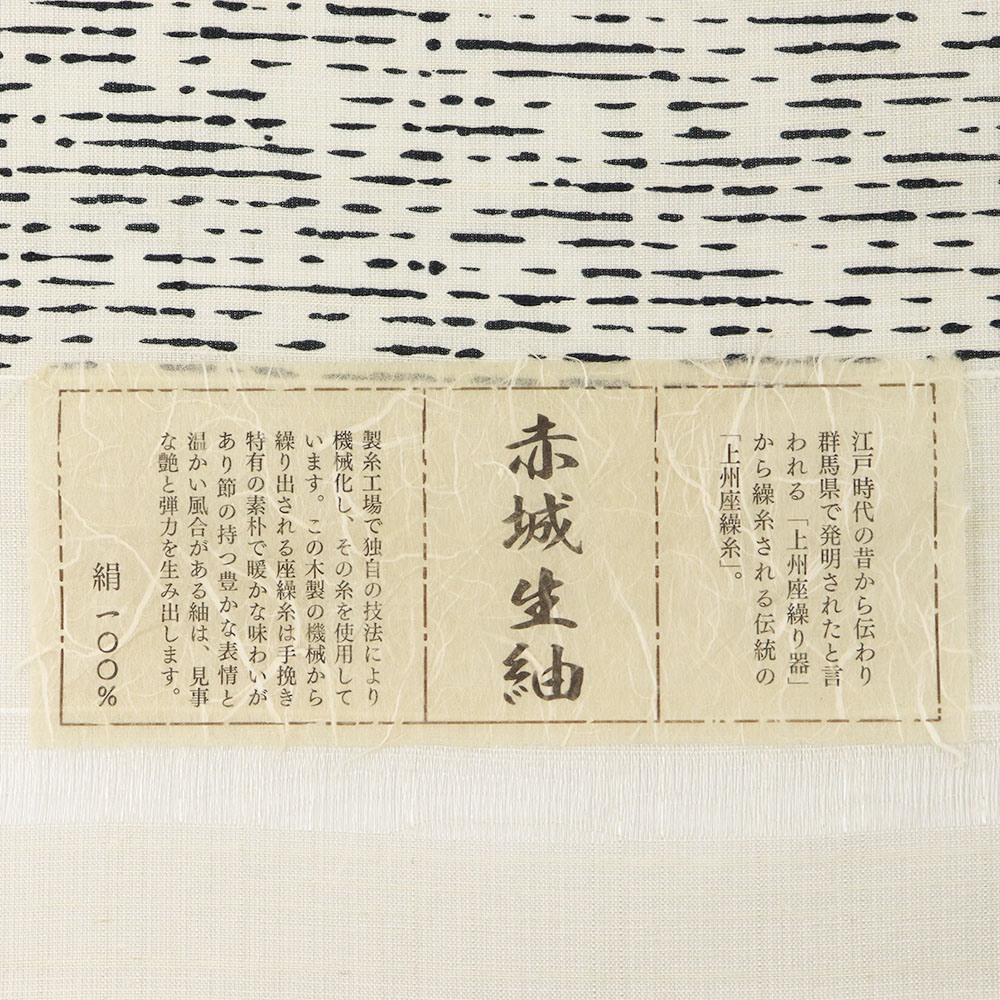 江戸時代の昔から伝わり
群馬県で発明されたと言
われる「上州座繰り器」
から繰糸される伝統の
「上州座繰糸」。
赤城生紬
製糸工場で独自の技法により
機械化し、その糸を使用して
います。この木製の機械から
繰り出される座繰糸は手挽き
特有の素朴で暖かな味わいが
あり節の持つ豊かな表情と
温かい風合がある紬は、見事
な艶と弾力を生み出します。
絹一〇〇%